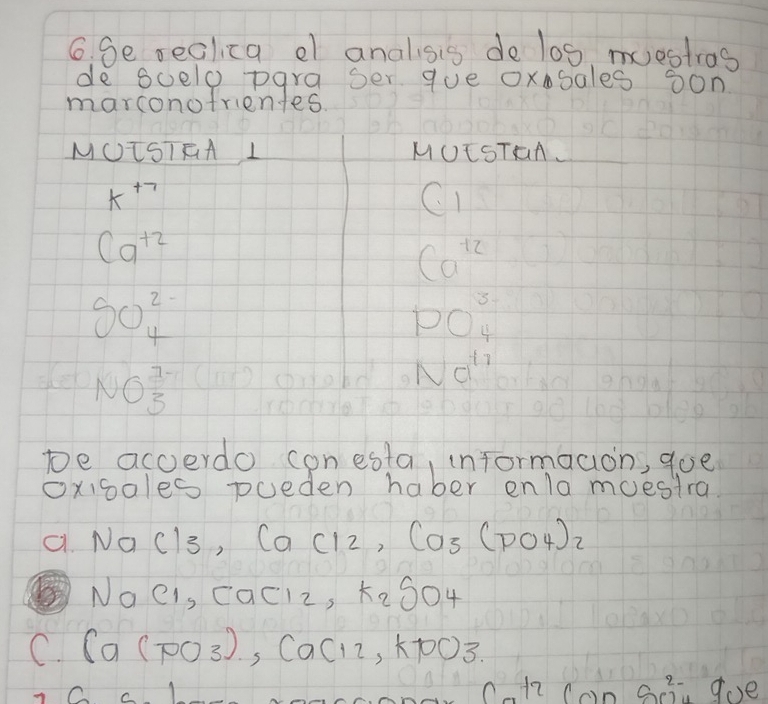 6. Se realiza el analisis de los muestras
de suelo para ser que oxisales son
marconotrientes.
MUESTRA 1 MUESTRA
K+1 Cl
Ca+2 Ca+2
SO4 2- PO4 3-
NO3 1- Na+1
De acuerdo con esta información, que
oxisales pueden haber en la muestra.
a. NaCl3, CaCl2, Ca3(PO4)2
b NaCl, CaCl2, K2SO4
C. Ca(PO3), CaCl2, KPO3.
Ca+2 con SO4 2- que